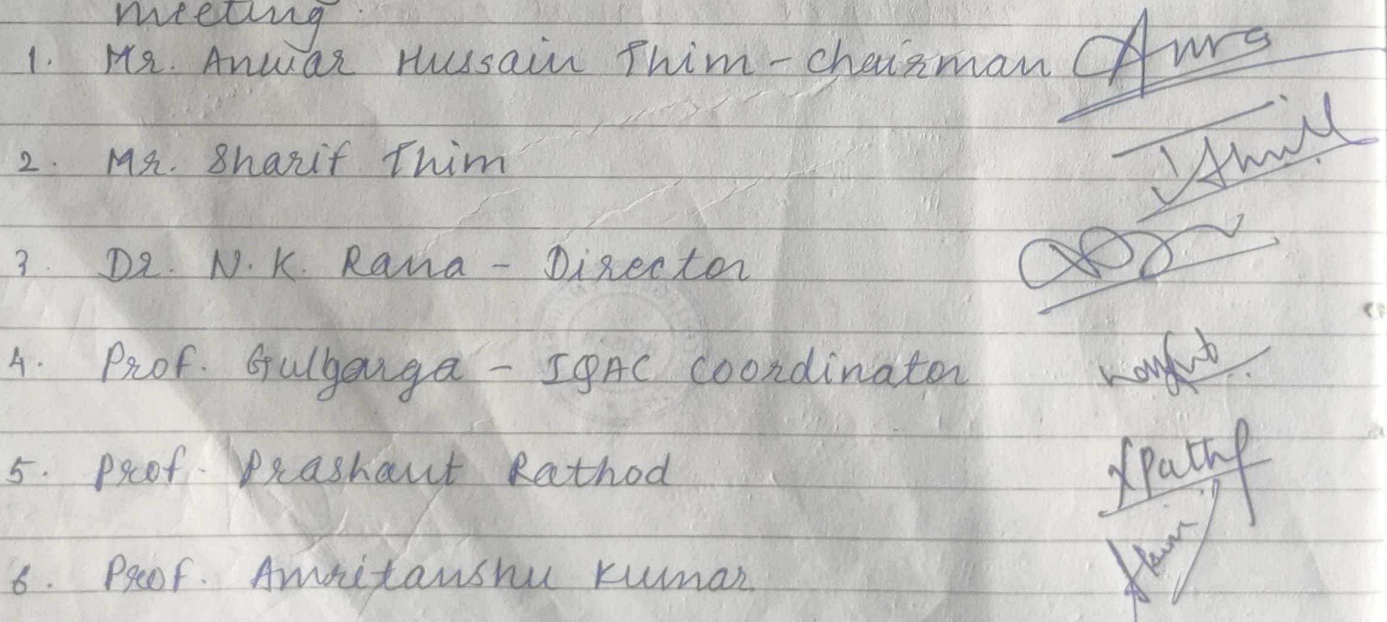 meeting.
1. Mr. Anwar Hussain Thim - Chairman
2. Mr. Sharif Thim
3. Dr. N. K. Rana - Director
4. Prof. Gulgarga - IQAC Coordinator
5. Prof. Prashant Rathod
6. Prof. Amritanshu Kumar